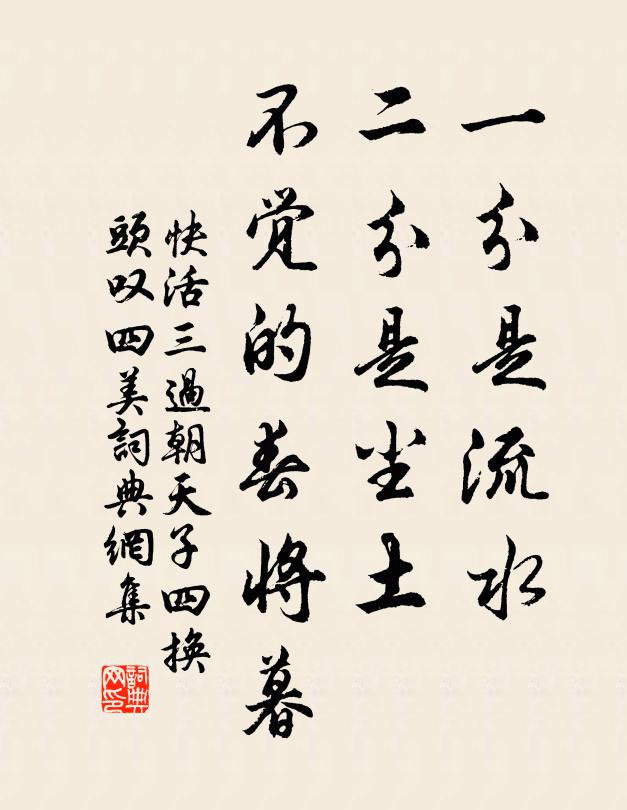 一分是流水
二分是尘土
不觉的春将暮
快活三過朝天子四換
頭叹四美詞典網集
詞典网印